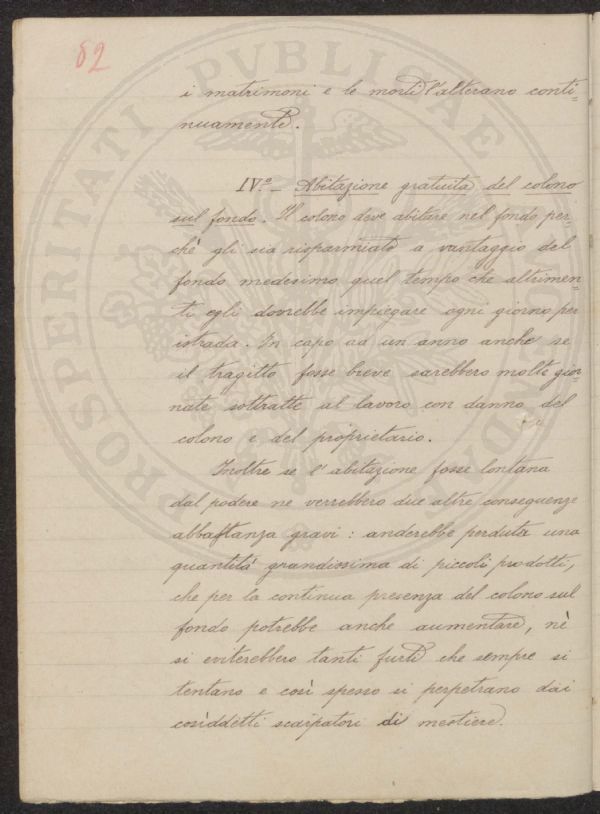 82
i matrimoni e le morti l'alterano conti=
nuamente.
IVº - Abitazione gratuita del colono
sul fondo. Il colono deve abitare nel fondo per=
chè gli sia risparmiato a vantaggio del
fondo medesimo quel tempo che altrimen=
ti egli dovrebbe impiegare ogni giorno per
istrada. In capo ad un anno anche se
il tragitto fosse breve sarebbero molte gior
nate sottratte al lavoro con danno del
colono e del proprietario.
Inoltre se l'abitazione fosse lontana
dal podere ne verrebbero due altre conseguenze
abbastanza gravi: anderebbe perduta una
quantità grandissima di piccoli prodotti,
che per la continua presenza del colono sul
fondo potrebbe anche aumentare, nè
si eviterebbero tanti furti che sempre si
tentano e così spesso si perpetrano dai
cosìddetti scarpatori di mestiere.
PROSPERITATI PVBLICAE